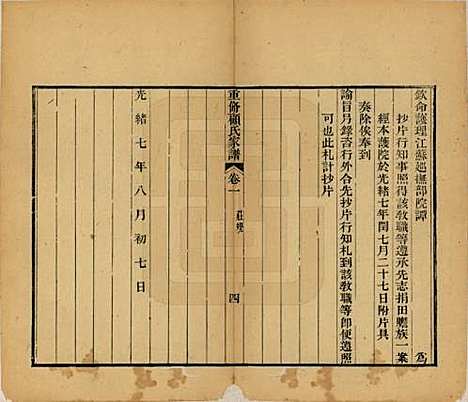 欽命護理江蘇巡撫部院譚 為
抄片行知事照得該教職等遵承先志捐田贍族一案
經本護院於光緒七年閏七月二十七日附片具
奏除俟奉到
諭旨另錄咨行外合先抄片行知札到該教職等即便遵照
可也此札計抄片
重脩顧氏家譜 卷一 莊 四
光緒七年八月初七日